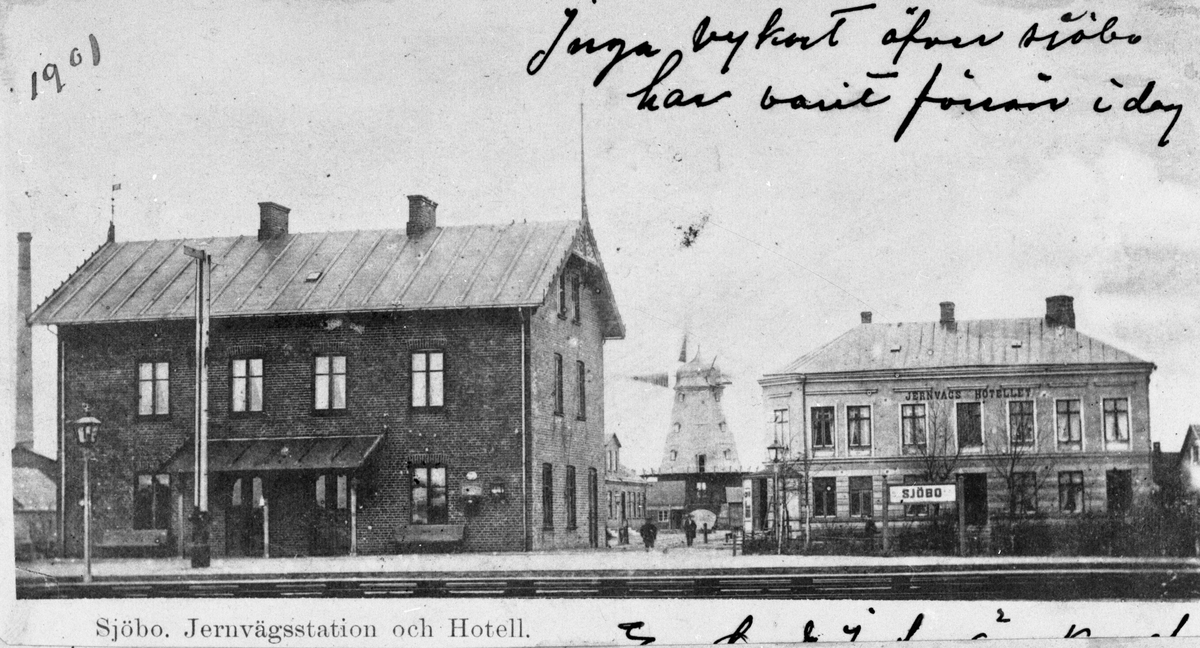 1901
Inga vykort öfver sjöbo
har varit förrän i dag
JERNVÄGS HOTELLET
SJÖBO
Sjöbo. Jernvägsstation och Hotell.